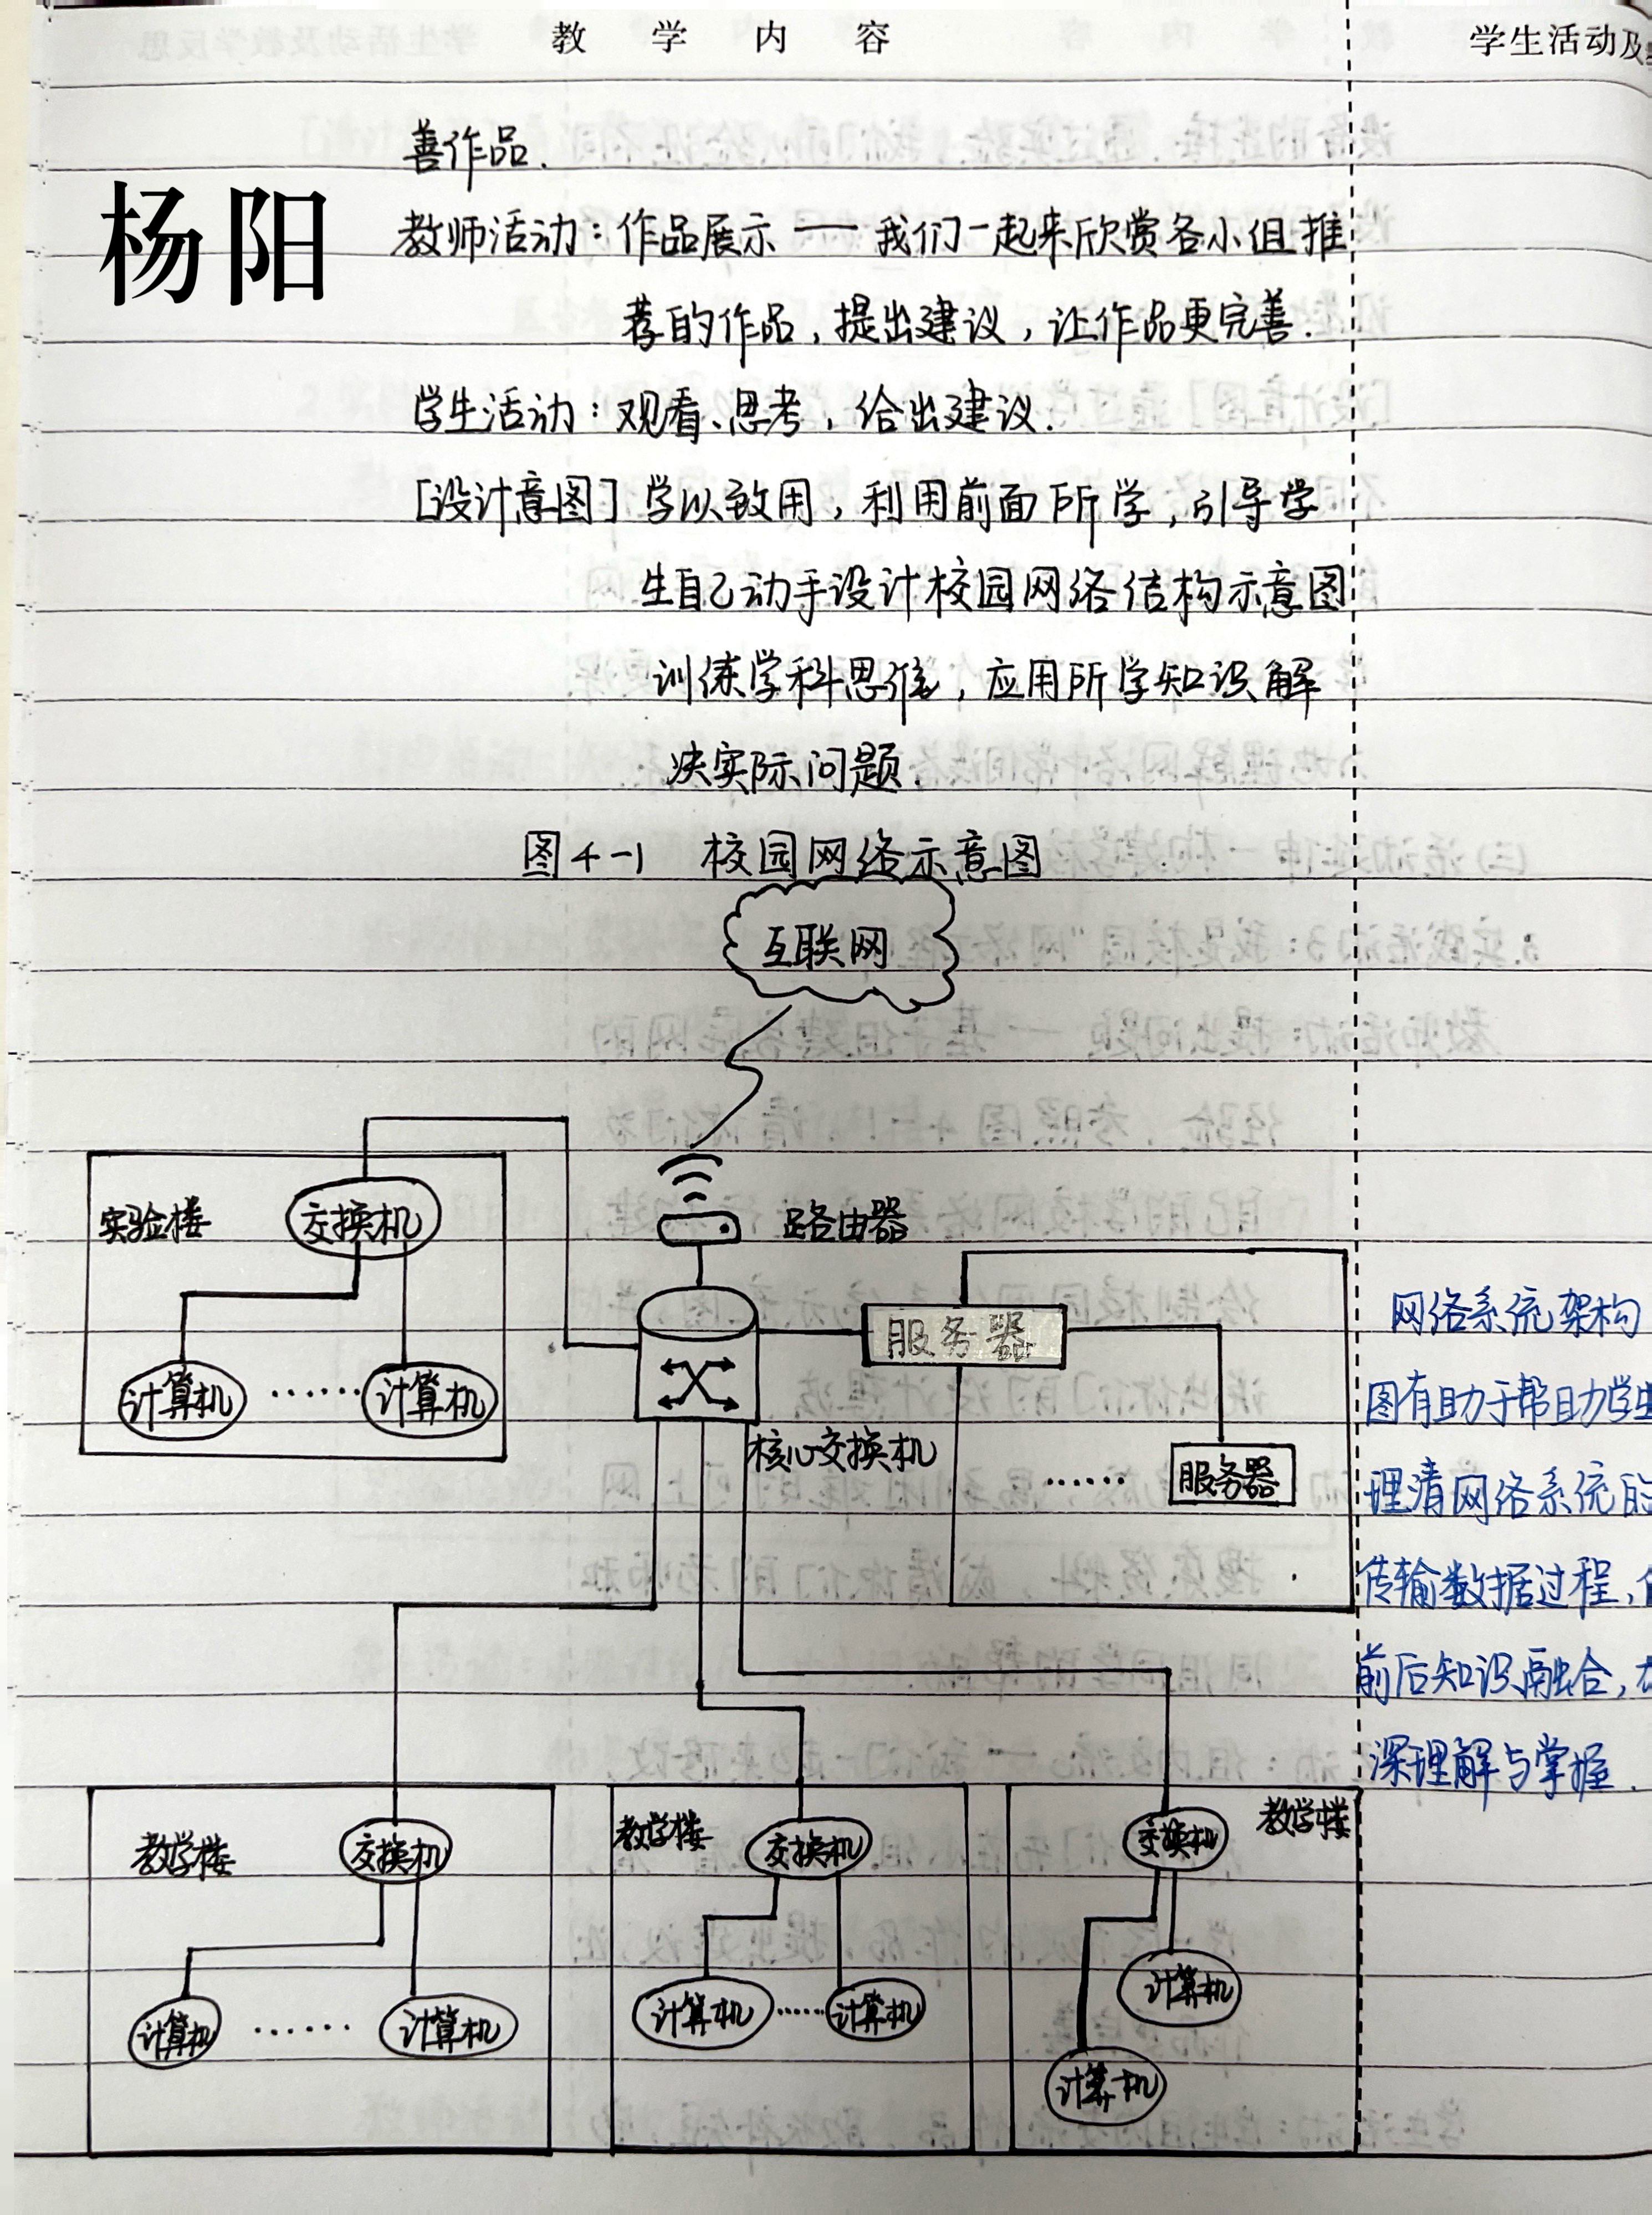 教 学 内 容
学生活动及
善作品.
杨阳
教师活动：作品展示 — 我们一起来欣赏各小组推
荐的作品，提出建议，让作品更完善.
学生活动：观看、思考，给出建议.
[设计意图] 学以致用，利用前面所学，引导学
生自己动手设计校园网络结构示意图
训练学科思维，应用所学知识解
决实际问题.
图4-1 校园网络示意图
互联网
实验楼
交换机
路由器
计算机 ...... 计算机
服务器
核心交换机
...... 服务器
网络系统架构
图有助于帮助学生
理清网络系统的
传输数据过程，
前后知识融合，
深理解与掌握.
教学楼
交换机
计算机 ...... 计算机
教学楼
交换机
计算机 ...... 计算机
教学楼
交换机
计算机
计算机